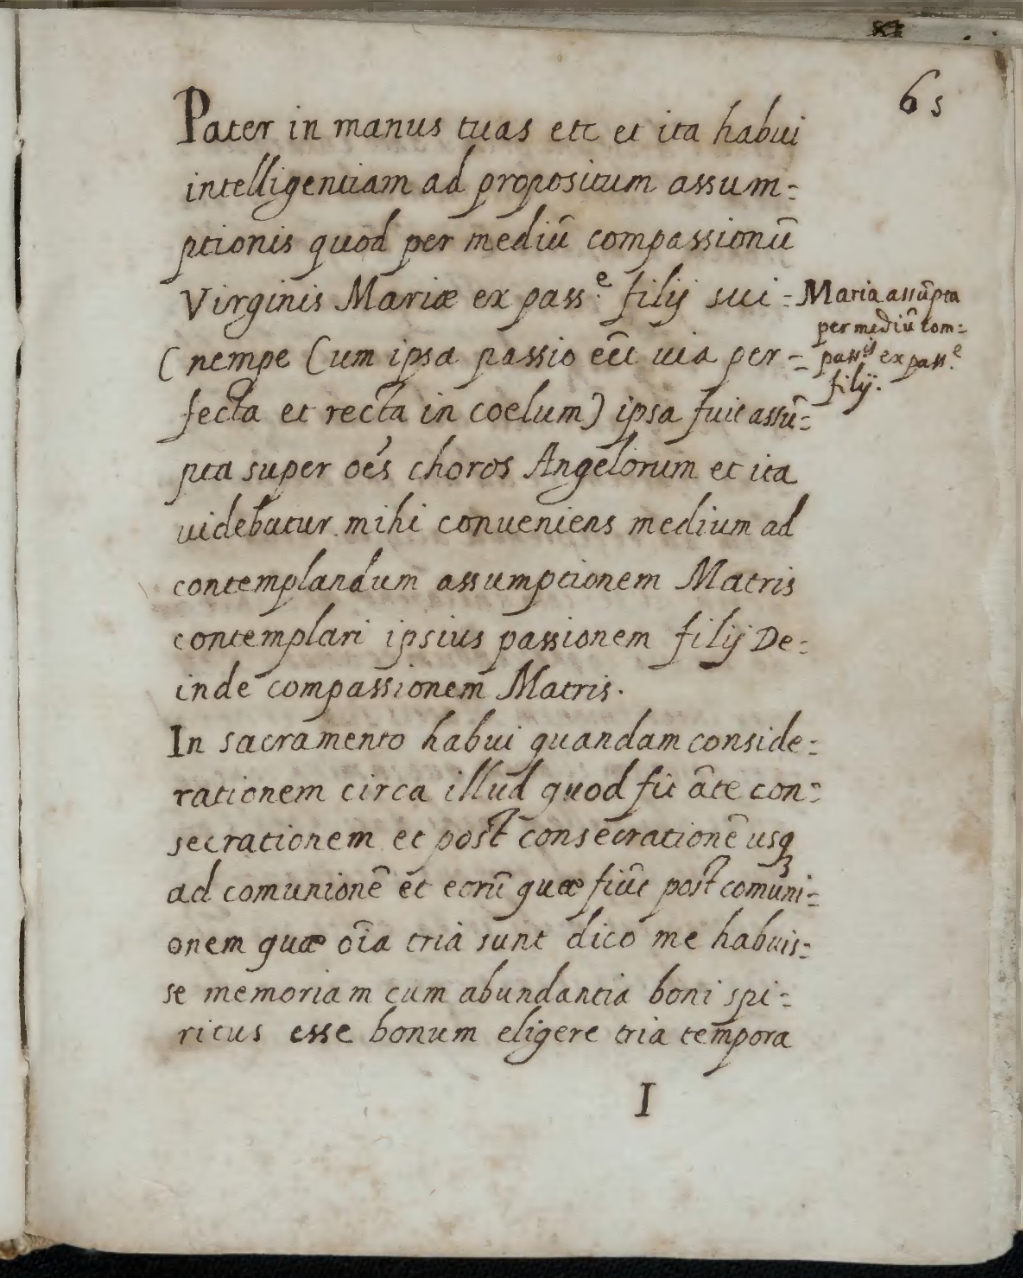 65
Pater in manus tuas etc et ita habui
intelligentiam ad propositum assum-
ptionis quod per mediū compassionū
Virginis Mariæ ex pass.e filij sui -
(nempe Cum ipsa passio eēt uia per-
fecta et recta in coelum) ipsa fuit assū-
pta super oēs choros Angelorum et ita
uidebatur mihi conueniens medium ad
contemplandum assumptionem Matris
contemplari ipsius passionem filij De-
inde compassionem Matris.
In sacramento habui quandam conside-
rationem circa illud quod fit āte con-
secrationem et post consecrationē usq3
ad comunionē et eorū quæ fiūt post comuni-
onem quæ oīa tria sunt dico me habuis-
se memoriam cum abundantia boni spi-
ritus esse bonum eligere tria tempora
I
Maria assūpta
per mediū com-
ex pass.e
filij.